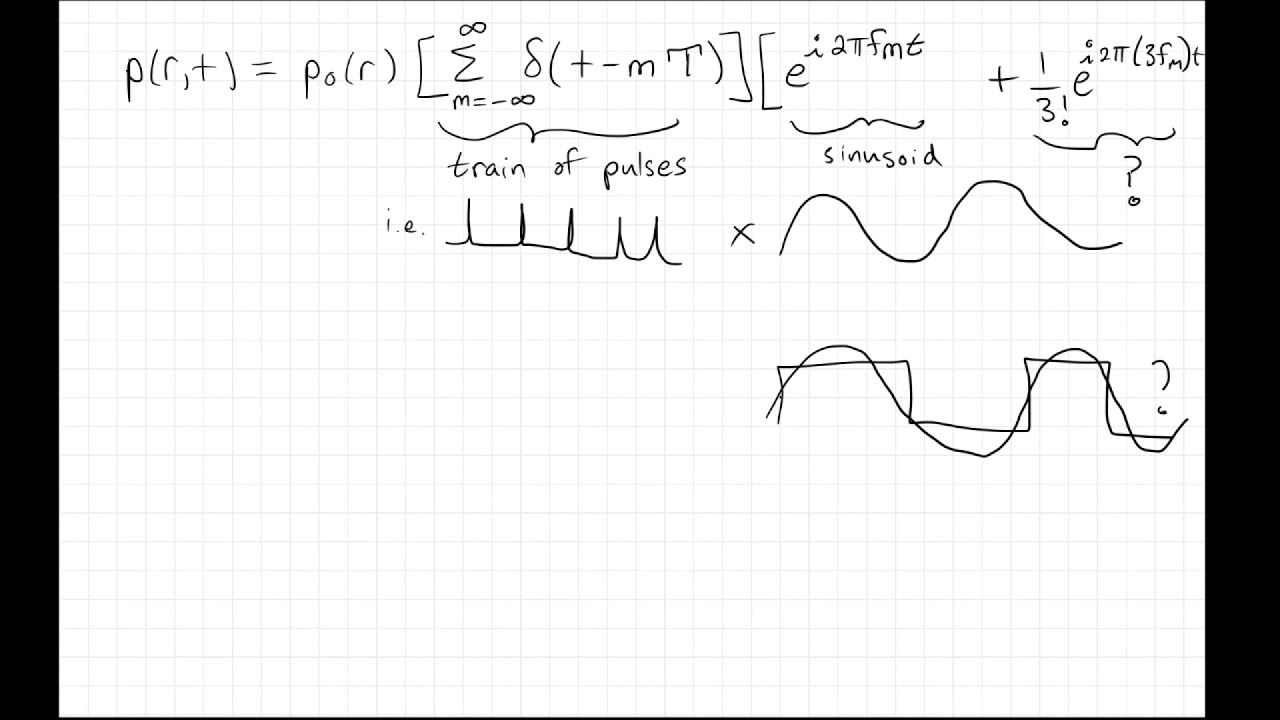 p(r,t) = p₀(r) [∑_{m=-∞}^{∞} δ(t-mT)] [e^{i2πfₘt} + 1/3! e^{i2π(3fₘ)t}
train of pulses sinusoid ?
i.e. x
?